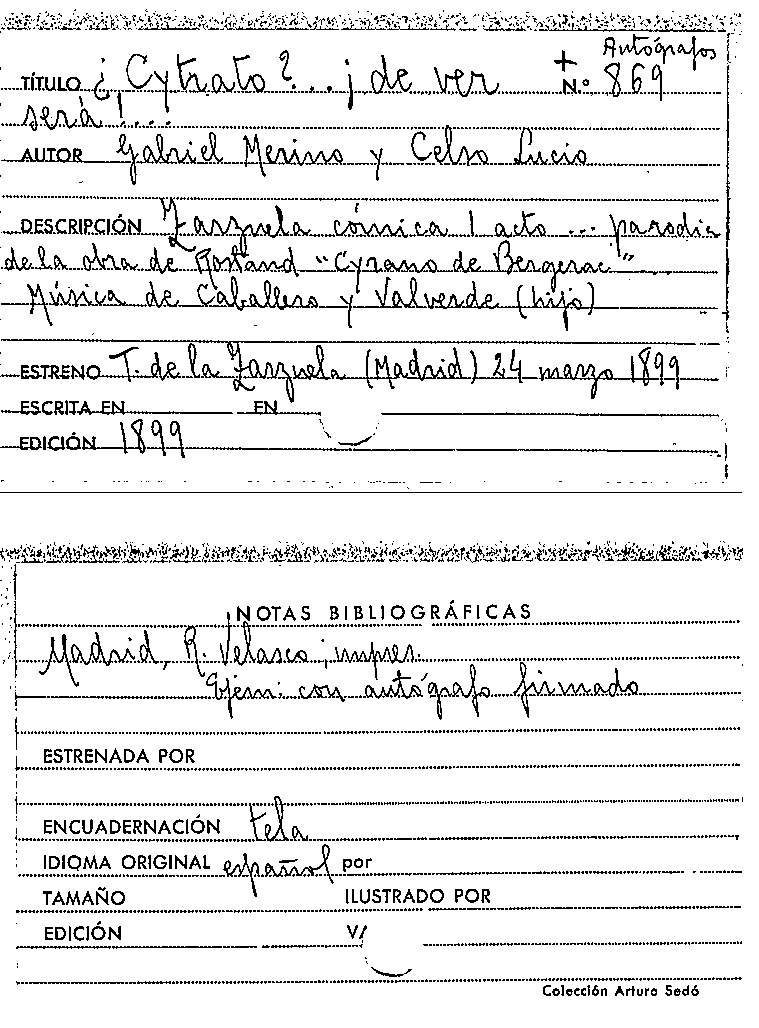 Autógrafos
TÍTULO ¿Cytrato?... ¡de ver + N.º 869
será!...
AUTOR Gabriel Merino y Celso Lucio
DESCRIPCIÓN Zarzuela cómica 1 acto ... parodia
de la obra de Rostand "Cyrano de Bergerac" ...
Música de Caballero y Valverde (hijo)
ESTRENO T. de la Zarzuela (Madrid) 24 marzo 1899
ESCRITA EN EN
EDICIÓN 1899
NOTAS BIBLIOGRÁFICAS
Madrid, R. Velasco, impres.
Ejem: con autógrafo firmado
ESTRENADA POR
ENCUADERNACIÓN tela
IDIOMA ORIGINAL español por
TAMAÑO ILUSTRADO POR
EDICIÓN V/
Colección Arturo Sedó